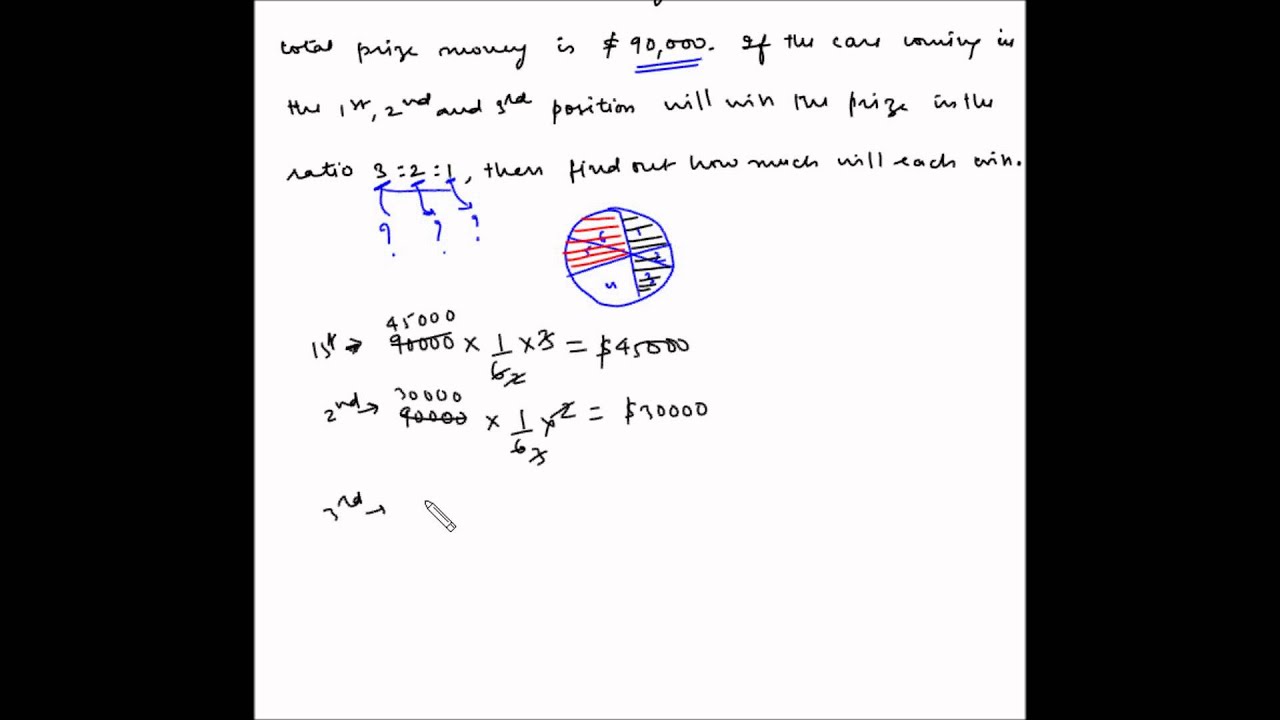 total prize money is $ 90,000. If the cars coming in
the 1st, 2nd and 3rd position will win the prize in the
ratio 3:2:1, then find out how much will each win.
? ? ?
6 1
5 2
4 3
45000
1st → 90000 × 1/6 2 × 3 = $45000
30000
2nd → 90000 × 1/6 3 × 2 = $30000
3rd →